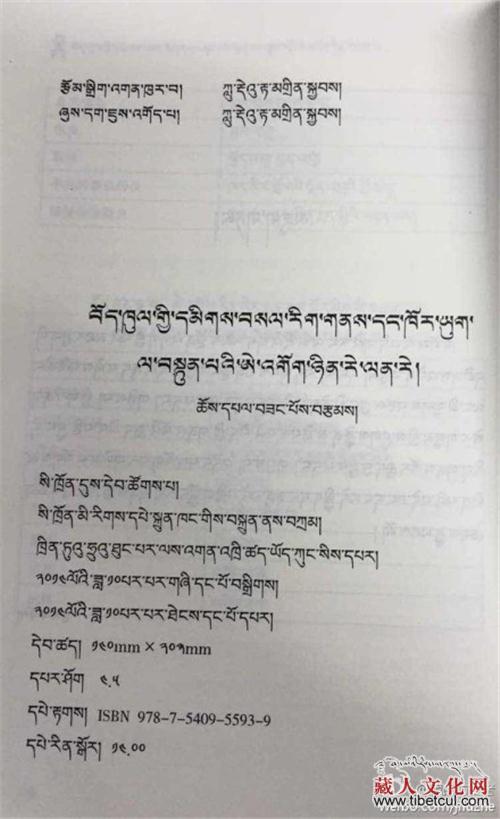 རྩོམ་སྒྲིག་འགན་ཁུར་བ། ཀླུ་རྡེའུ་རྟ་མགྲིན་སྐྱབས།
ཞུས་དག་ཇུས་འགོད་པ། ཀླུ་རྡེའུ་རྟ་མགྲིན་སྐྱབས།
བོད་ཁུལ་གྱི་དམིགས་བསལ་རིག་གནས་དང་ཁོར་ཡུག་
ལ་བསྟུན་པའི་ཨེ་འགོག་ཉིན་རེ་ལན་རེ།
ཆོས་དཔལ་བཟང་པོས་བརྩམས།
སི་ཁྲོན་དུས་དེབ་ཚོགས་པ།
སི་ཁྲོན་མི་རིགས་དཔེ་སྐྲུན་ཁང་གིས་བསྐྲུན་ནས་བཀྲམ།
ཁྲིན་ཏུའུ་ཧྲུའུ་ཐུང་པར་ལས་འགན་འཁྲི་ཚད་ཡོད་ཀུང་སིས་དཔར།
༢༠༡༤ལོའི་ཟླ་༡༠པར་པར་གཞི་དང་པོ་བསྒྲིགས།
༢༠༡༤ལོའི་ཟླ་༡༠པར་པར་ཐེངས་དང་པོ་དཔར།
དེབ་ཚད། ༡༤༠mm × ༢༠༣mm
དཔར་ཤོག ༤.༥
དཔེ་རྟགས། ISBN 978-7-5409-5593-9
དཔེ་རིན་སྒོར། ༡༤.༠༠
藏人文化网
www.tibetcul.com